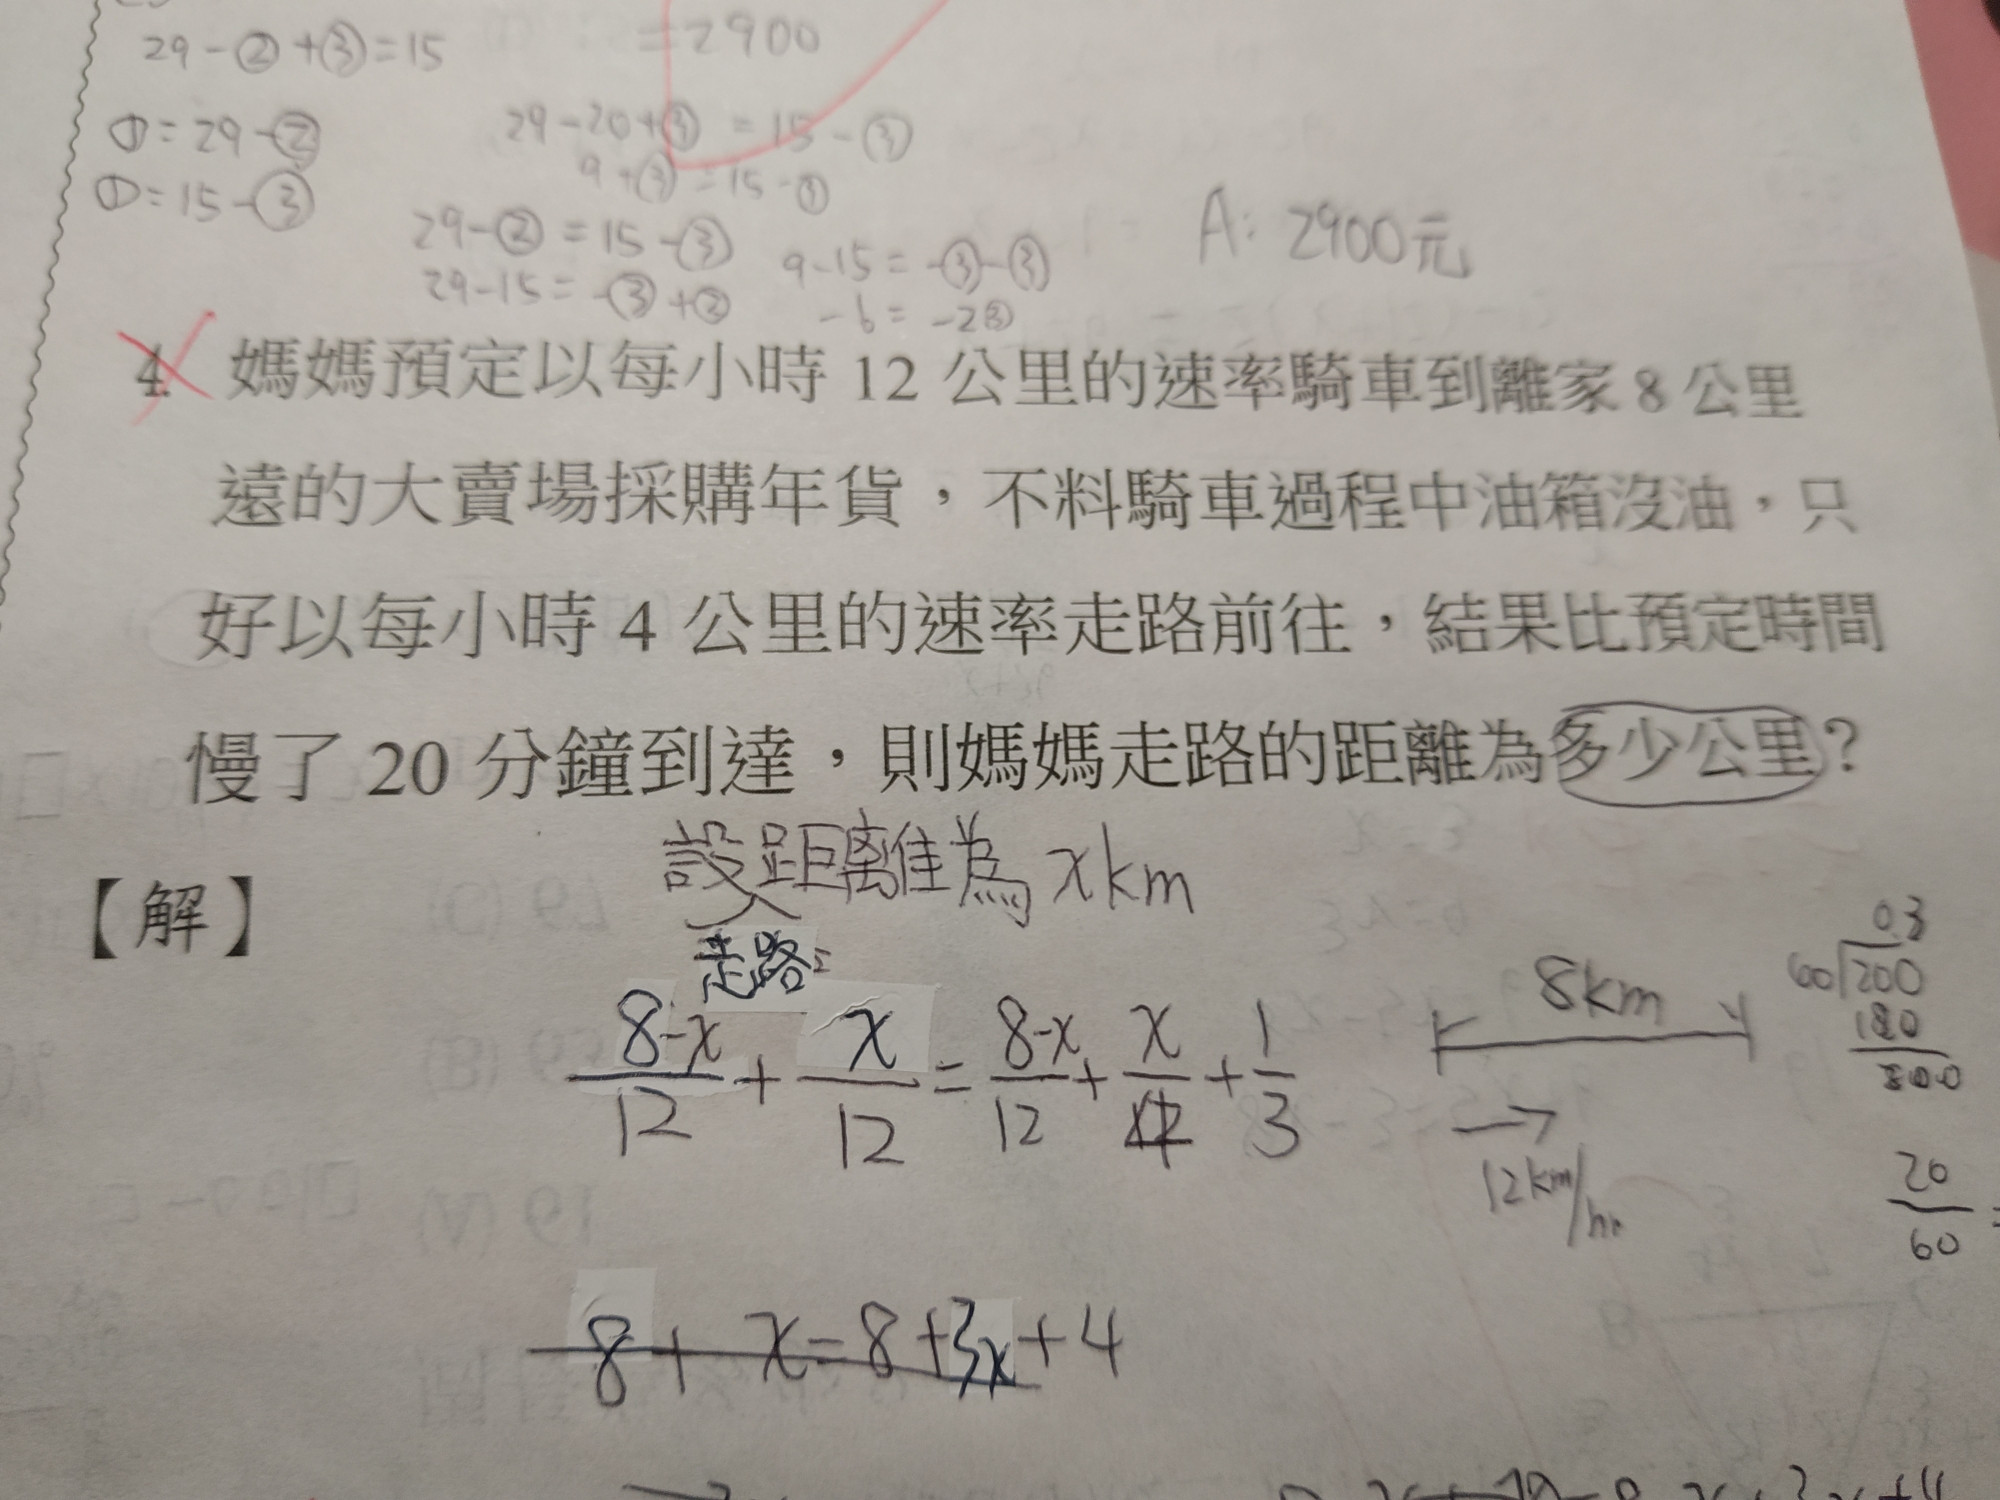 29-②+③=15
=2900
①=29-②
①=15-③
29-20+③=15-③
9+③=15-③
29-②=15-③
29-15=-③+②
9-15=-③-③
-6=-2③
A: 2900元
4. 媽媽預定以每小時 12 公里的速率騎車到離家 8 公里
遠的大賣場採購年貨，不料騎車過程中油箱沒油，只
好以每小時 4 公里的速率走路前往，結果比預定時間
慢了 20 分鐘到達，則媽媽走路的距離為多少公里？
【解】
設走路距離為 x km
8-x/12 + x/12 = 8-x/12 + x/4 + 1/3
8km
12km/hr
0.3
60)200
180
20/60 =
8+x=8+3x+4